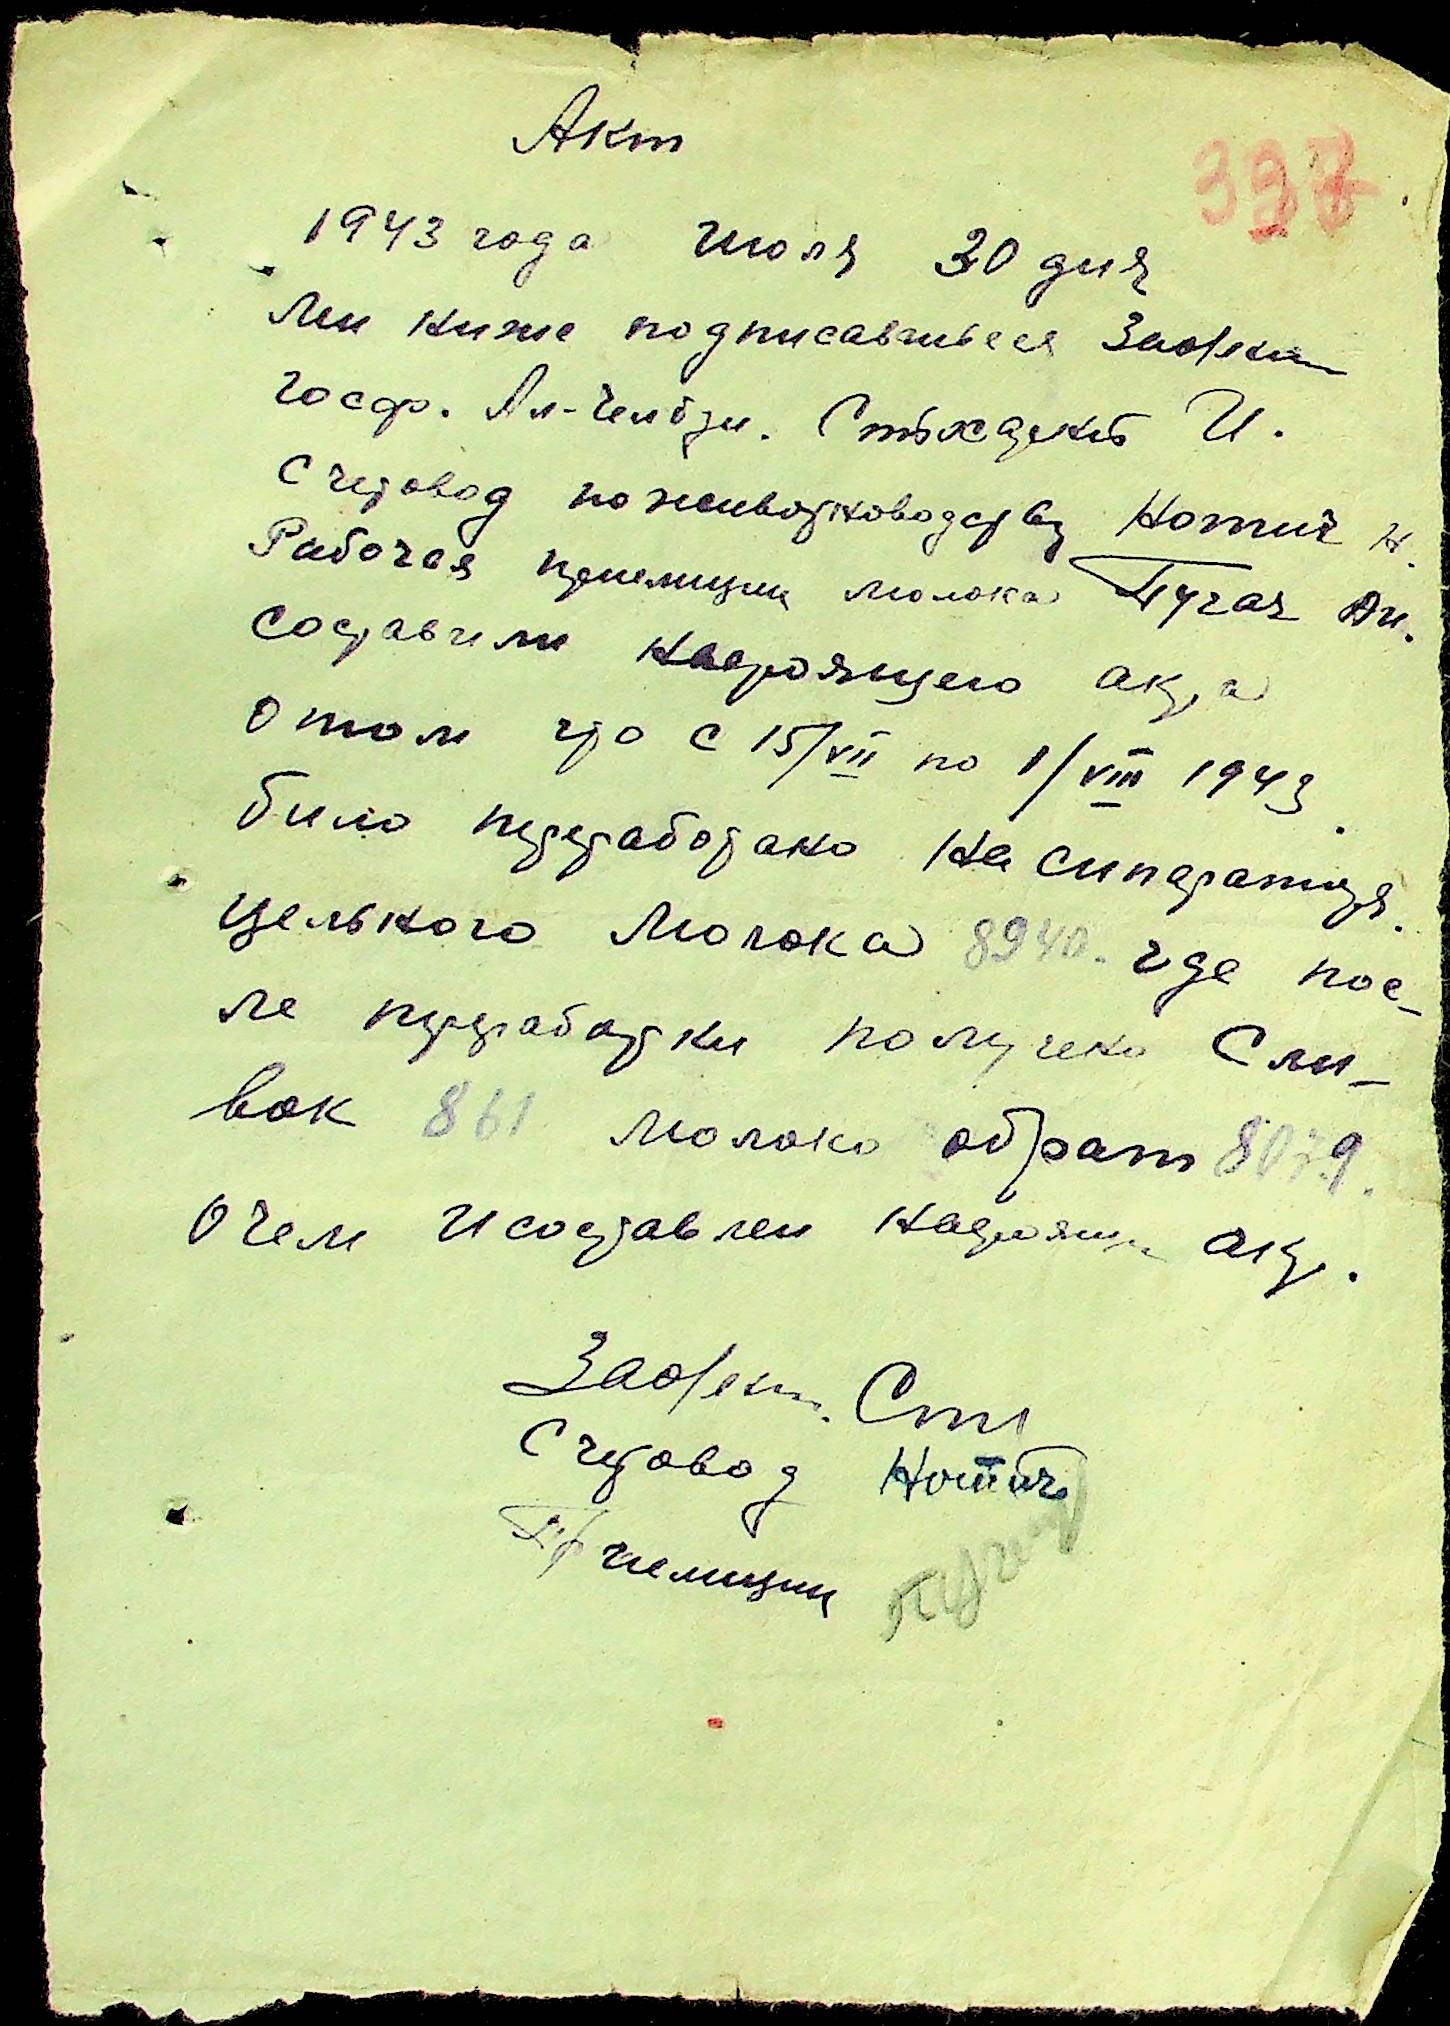 Акт
1943 года июля 30 дня
Ми ниже подписавшиеся
госф. Ал-Челбзи. И.
Счетовод по животноводству Нотич Н.
Рабочая приемщик молока Пугач Ан.
составили настоящего акта
о том что с 15/VII по 1/VIII 1943.
било переработано на сипаратор.
цельного молока 8940. где пос-
ле переработки получено Сли-
вок 861 молоко обрат 8079.
О чем и составлен настоящ акт.
Ст
Счетовод Нотич
Приемщик Пугач